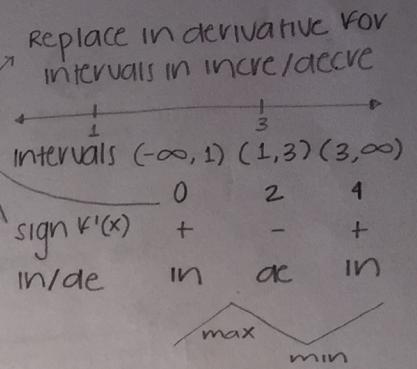 Replace in derivative for
intervals in incre/decre
1 3
intervals (-∞, 1) (1,3) (3,∞)
0 2 4
sign f'(x) + - +
in/de in de in
max
min